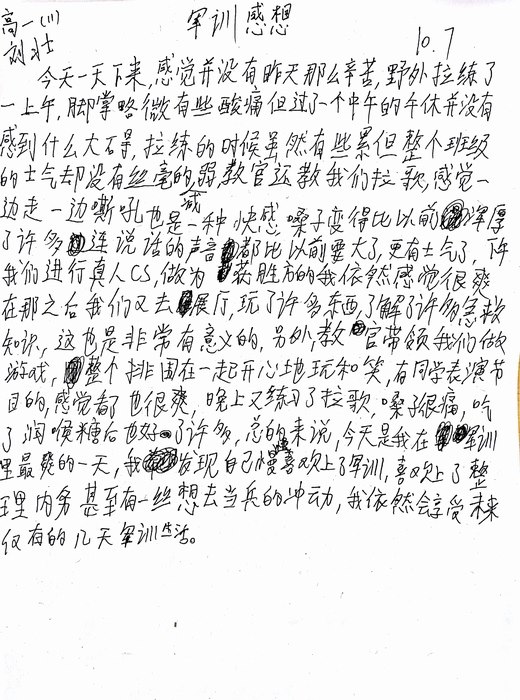 高一(1)
军训感想
刘壮
10.7
今天一天下来,感觉并没有昨天那么辛苦,野外拉练了
一上午,脚掌略微有些酸痛但过了一个中午的午休并没有
感到什么大石㝵,拉练的时候虽然有些累但整个班级
的士气却没有丝毫的减弱,教官还教我们拉歌,感觉一
边走一边嘶吼也是一种快感嗓子变得比以前浑厚
了许多连说话的声音都比以前要大了,更有士气了,下午
我们进行真人CS,做为获胜方的我依然感觉很爽
在那之后我们又去展厅,玩了许多东西,了解了许多急救
知识,这也是非常有意义的,另外,教官带领我们做
游戏,整个排围在一起开心地玩和笑,有同学表演节
目的,感觉都也很爽,晚上又练习了拉歌,嗓子很痛,吃
了润喉糖后也好了许多,总的来说,今天是我在军训
里最爽的一天,我发现自己慢慢喜欢上了军训,喜欢上了整
理内务甚至有一丝想去当兵的冲动,我依然会享受未来
仅有的几天军训生活。